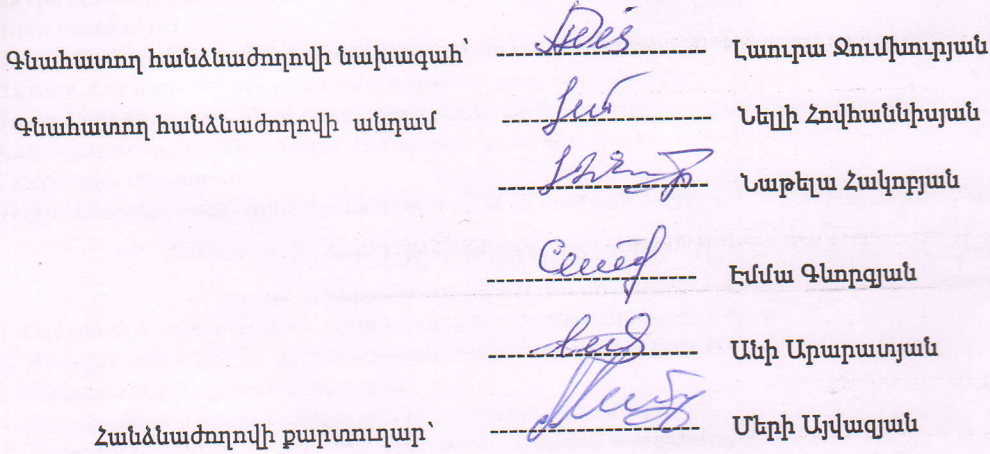 Գնահատող հանձնաժողովի նախագահ՝ ---------------------- Լաուրա Ջումխուրյան
Գնահատող հանձնաժողովի անդամ ---------------------- Նելլի Հովհաննիսյան
---------------------- Նաթելա Հակոբյան
---------------------- Էմմա Գևորգյան
---------------------- Անի Արարատյան
Հանձնաժողովի քարտուղար՝ ---------------------- Մերի Այվազյան